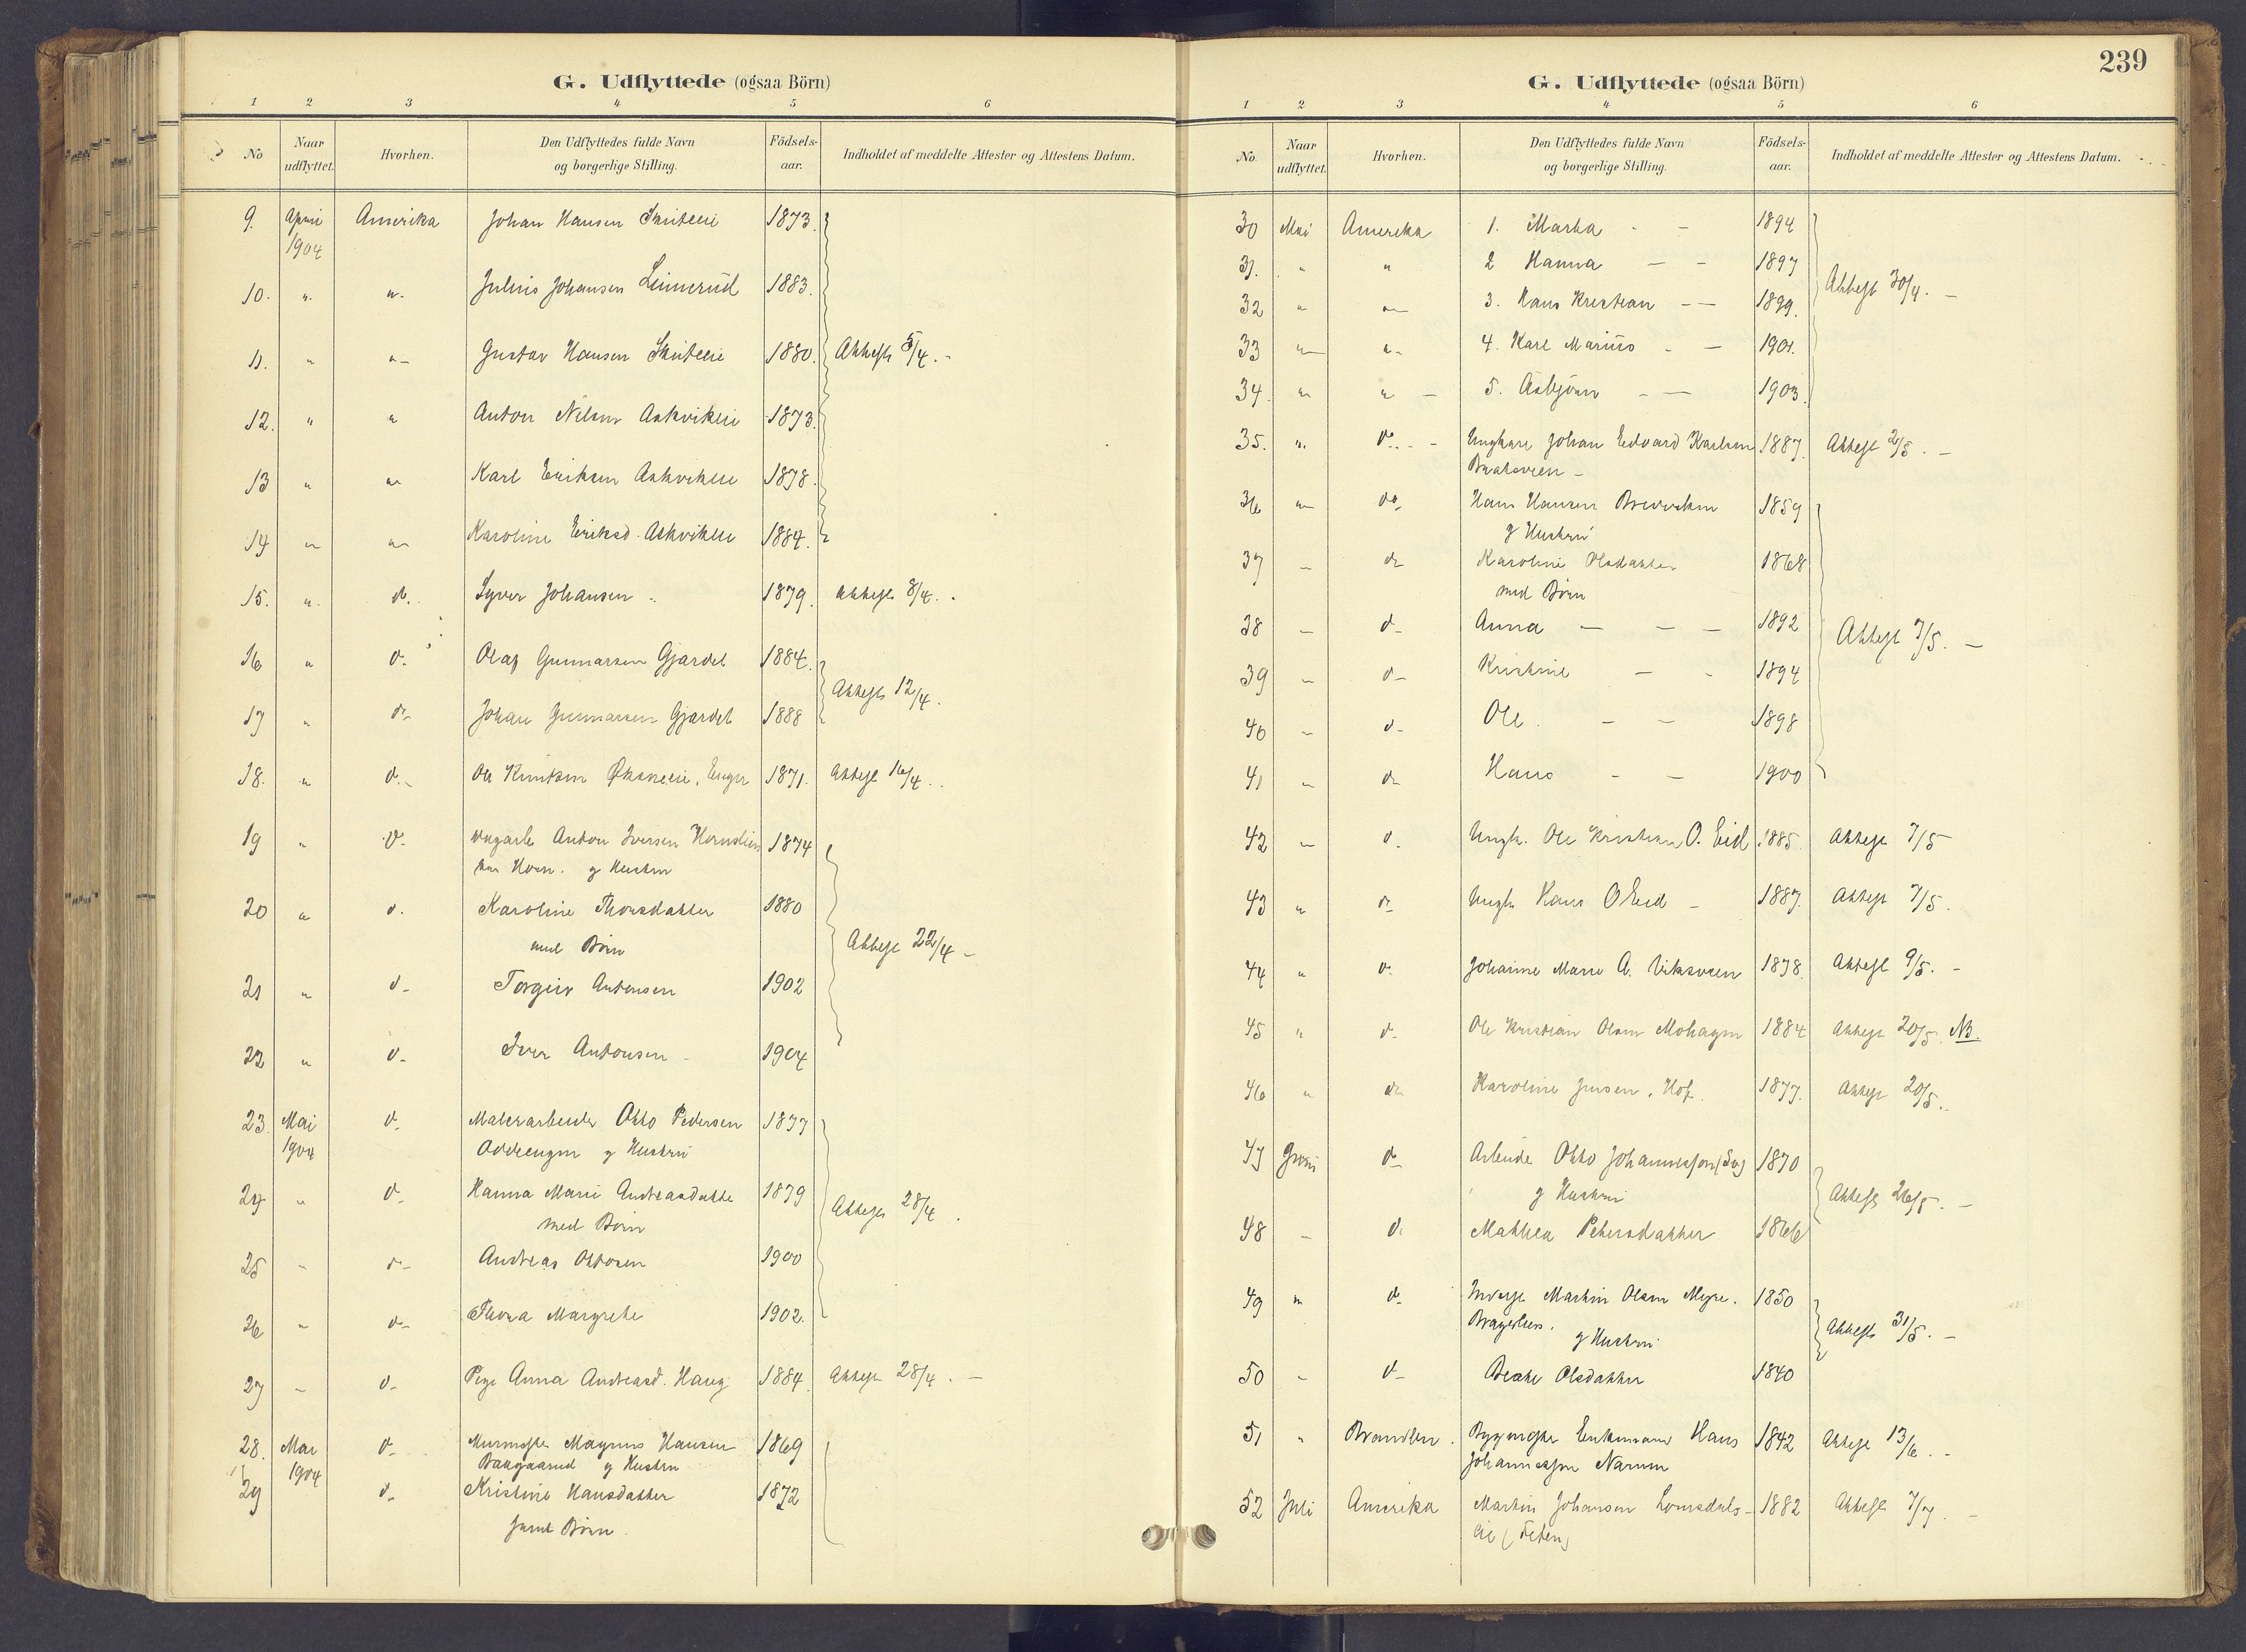 G. Udflyttede (ogsaa Börn)
1 2 3 4 5 6
No Naar udflyttet. Hvorhen. Den Udflyttedes fulde Navn og borgerlige Stilling. Födsels-aar. Indholdet af meddelte Attester og Attestens Datum.
9. April 1904 Amerika Johan Hansen 1873.
10. " " Julius Johansen 1883.
11. " " Gustav Hansen 1880. Attest 5/4. -
12. " " Anton Nilsen Askviken 1873.
13 " " Karl Eriksen 1878.
14 " " Karoline Eriksd. 1884.
15. " d. Syver Johansen " 1879. Attest 8/4. -
16 " d. Olaf Gunnarsen Gjardel 1884.
Attest 12/4.
17 " d. Johan Gunnarsen Gjardel 1888
18. " d. Ole Knutsen 1871. Attest 16/4.
19 " d. Anton Iversen 1874
Horn. g Hustru
20 " d. Karoline Thorsdatter 1880
med Börn
Attest 22/4 -
21 " d. Torgeir Antonsen 1902
22 " d. Iver Antonsen - 1904
23 Mai 1904 d. Malerarbeider Otto Pedersen 1877
g Hustru
24 " d. Hanna Marie Andreasdatter 1879
med Börn
Attest 28/4.
25 " d. Andreas Ottosen 1900
26 " d. Thora Margrethe 1902.
27 - d. Pige Anna Andreasd. Haug 1884 Attest 28/4. -
28. Mai 1904 d. Murmester Magnus Hansen 1869
g Hustru
29 d. Kristine Hansdatter 1872
samt Börn.
239
G. Udflyttede (ogsaa Börn)
1 2 3 4 5 6
No. Naar udflyttet. Hvorhen. Den Udflyttedes fulde Navn og borgerlige Stilling. Födsels-aar. Indholdet af meddelte Attester og Attestens Datum.
30 Mai Amerika 1. Marta - - 1894
31. " " 2 Hanna - - 1897
Attest 30/4. -
32 " " 3. Hans Kristian - - 1899.
33 " " 4. Karl Marius - - 1901.
34. " " 5. Asbjörn - - 1903.
35. " d. Ungkarl Johan Edvard Karlsen 1887. Attest 2/5. -
36 " do Hans Hansen 1859
g Hustru
37 - do Karoline Olsdatter 1868
med Börn
38 - d. Anna - - - 1892
Attest 7/5. -
39 - d. Kristine - - 1894
40 - d. Ole - - 1898
41 - do Hans - - 1900
42 - d. Ungk. Ole Kristian O. Eid 1885. Attest 7/5
43 " do Ungk. Hans O Eid - 1887. Attest 7/5.
44 " d. Johanne Marie A. 1878. Attest 9/5. -
45 " d. Ole Kristian Olsen Mohagen 1884 Attest 20/5. NB.
46 " do Karoline Jensen, Hof. 1877. Attest 20/5.
47 Juni do Arbeider Otto Johannessen 1870
g Hustru
Attest 26/5. -
48 - d. Mathea Petersdatter 1866
49 " d. Martin Olsen Myre. 1850
g Hustru
Attest 31/5. -
50 - d. Beate Olsdatter 1840
51 " Bygmester Enkemand Hans 1842 Attest 13/6. -
Johannessen Narum
52 Juli Amerika Martin Johansen Lomsdals- 1882 Attest 7/7. -
eie